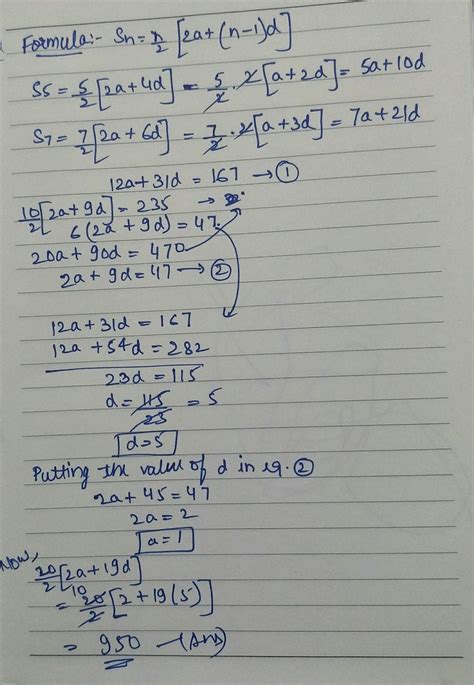 Formula:- Sn = n/2 [2a+(n-1)d]
S5 = 5/2 [2a+4d] = 5/2 · 2[a+2d] = 5a+10d
S7 = 7/2 [2a+6d] = 7/2 · 2[a+3d] = 7a+21d
12a+31d = 167 → ①
10/2 [2a+9d] = 235 →
6(2a+9d) = 47
20a+90d = 470
2a+9d = 47 → ②
12a+31d = 167
12a+54d = 282
23d = 115
d = 115/23 = 5
d=5
Putting the value of d in eq. ②
2a+45 = 47
2a = 2
a=1
Now,
20/2 [2a+19d]
= 20/2 10 [2+19(5)]
= 950 —(Ans)